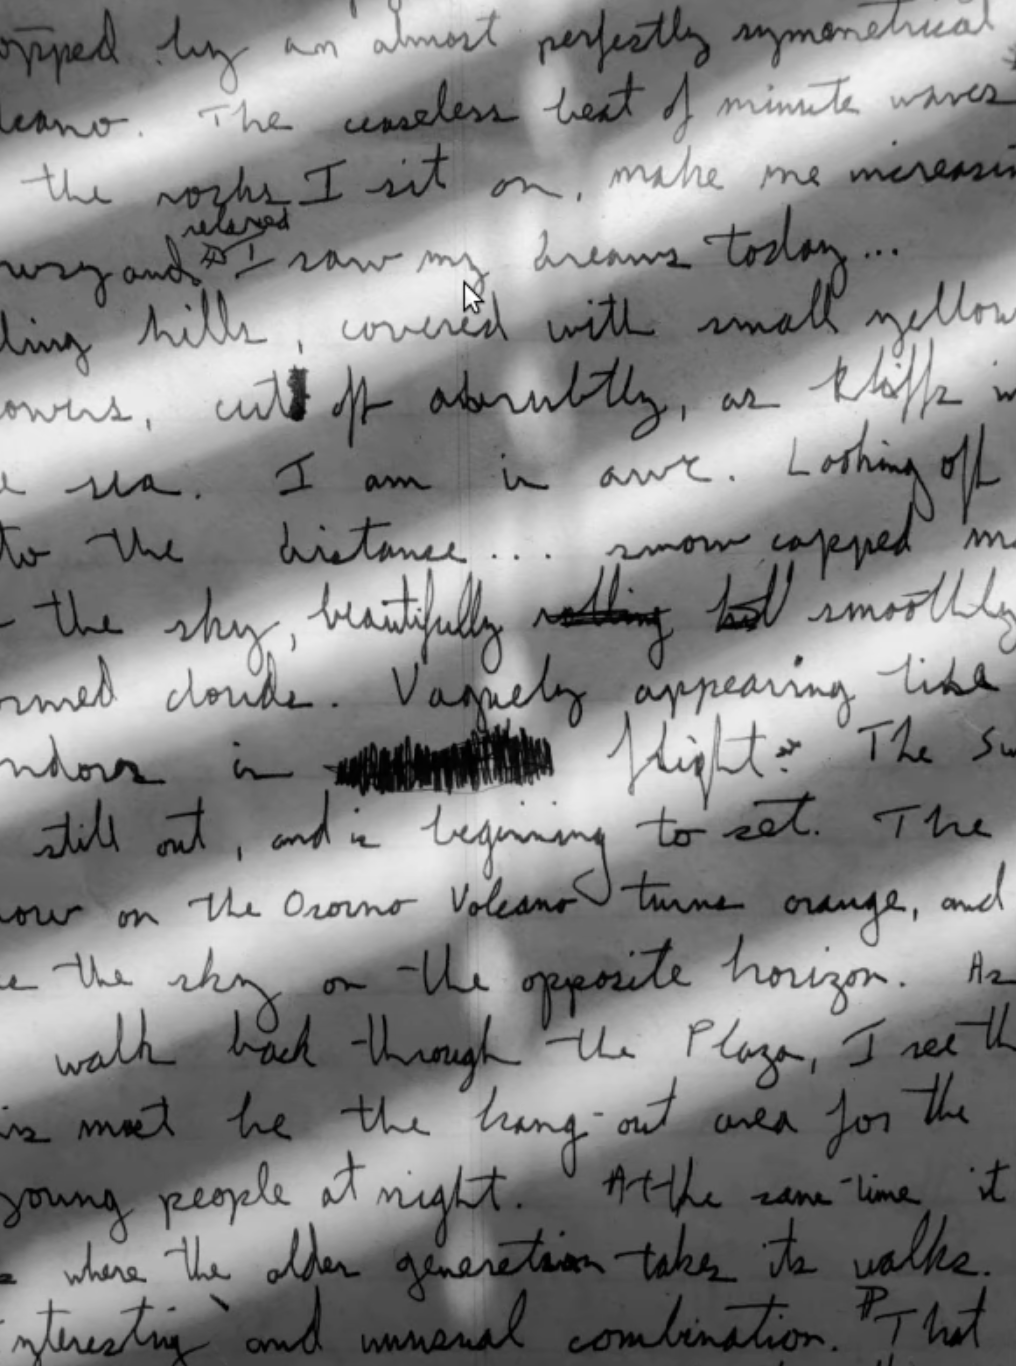 opped by an almost perfectly symmetrical
lcano. The ceaseless beat of minute waves
the rocks I sit on, make me increasin
relaxed
wsy and I saw my dreams today...
ling hills, covered with small yellow
owers, cut off abrubtly, as kliffs in
e sea. I am in awe. Looking off
to the distance... snow capped mo
the sky, beautifully rolling but smoothly
rmed clouds. Vaguely appearing like
ndors in flight. The Su
still out, and is beginning to set. The
now on the Osorno Volcano turns orange, and
e the sky on the opposite horizon. As
walk back through the Plaza, I see th
is must be the hang-out area for the
young people at night. At the same time it
s where the older generation takes its walks.
interesting and unusual combination. That